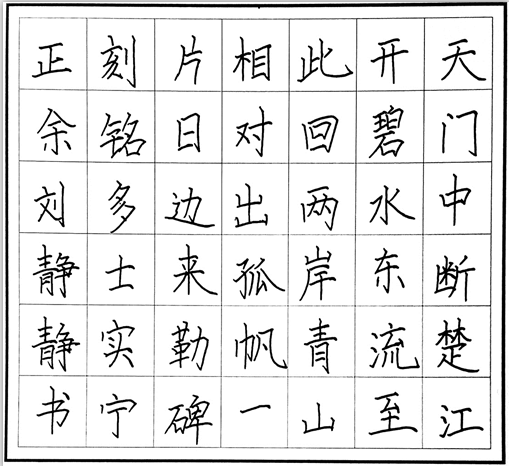 天门中断楚江
开碧水东流至
此回两岸青山
相对出孤帆一
片日边来勒碑
刻铭多士实宁
正余刘静静书